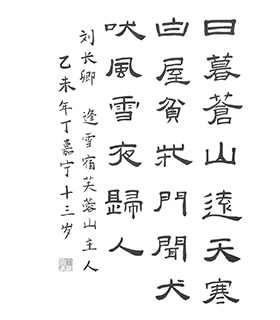 日暮蒼山遠天寒
白屋貧柴門聞犬
吠風雪夜歸人
刘长卿 逢雪宿芙蓉山主人
乙未年丁嘉宁十三岁